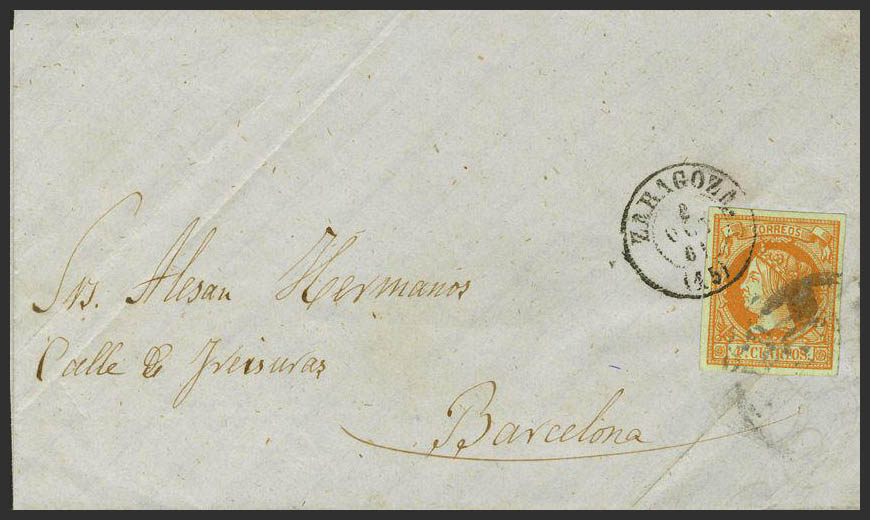 ZARAGOZA.
8
OCT
61
(45)
CORREOS
4 CUARTOS.
Srs. Alesan Hermanos
Calle de Freisuras
Barcelona